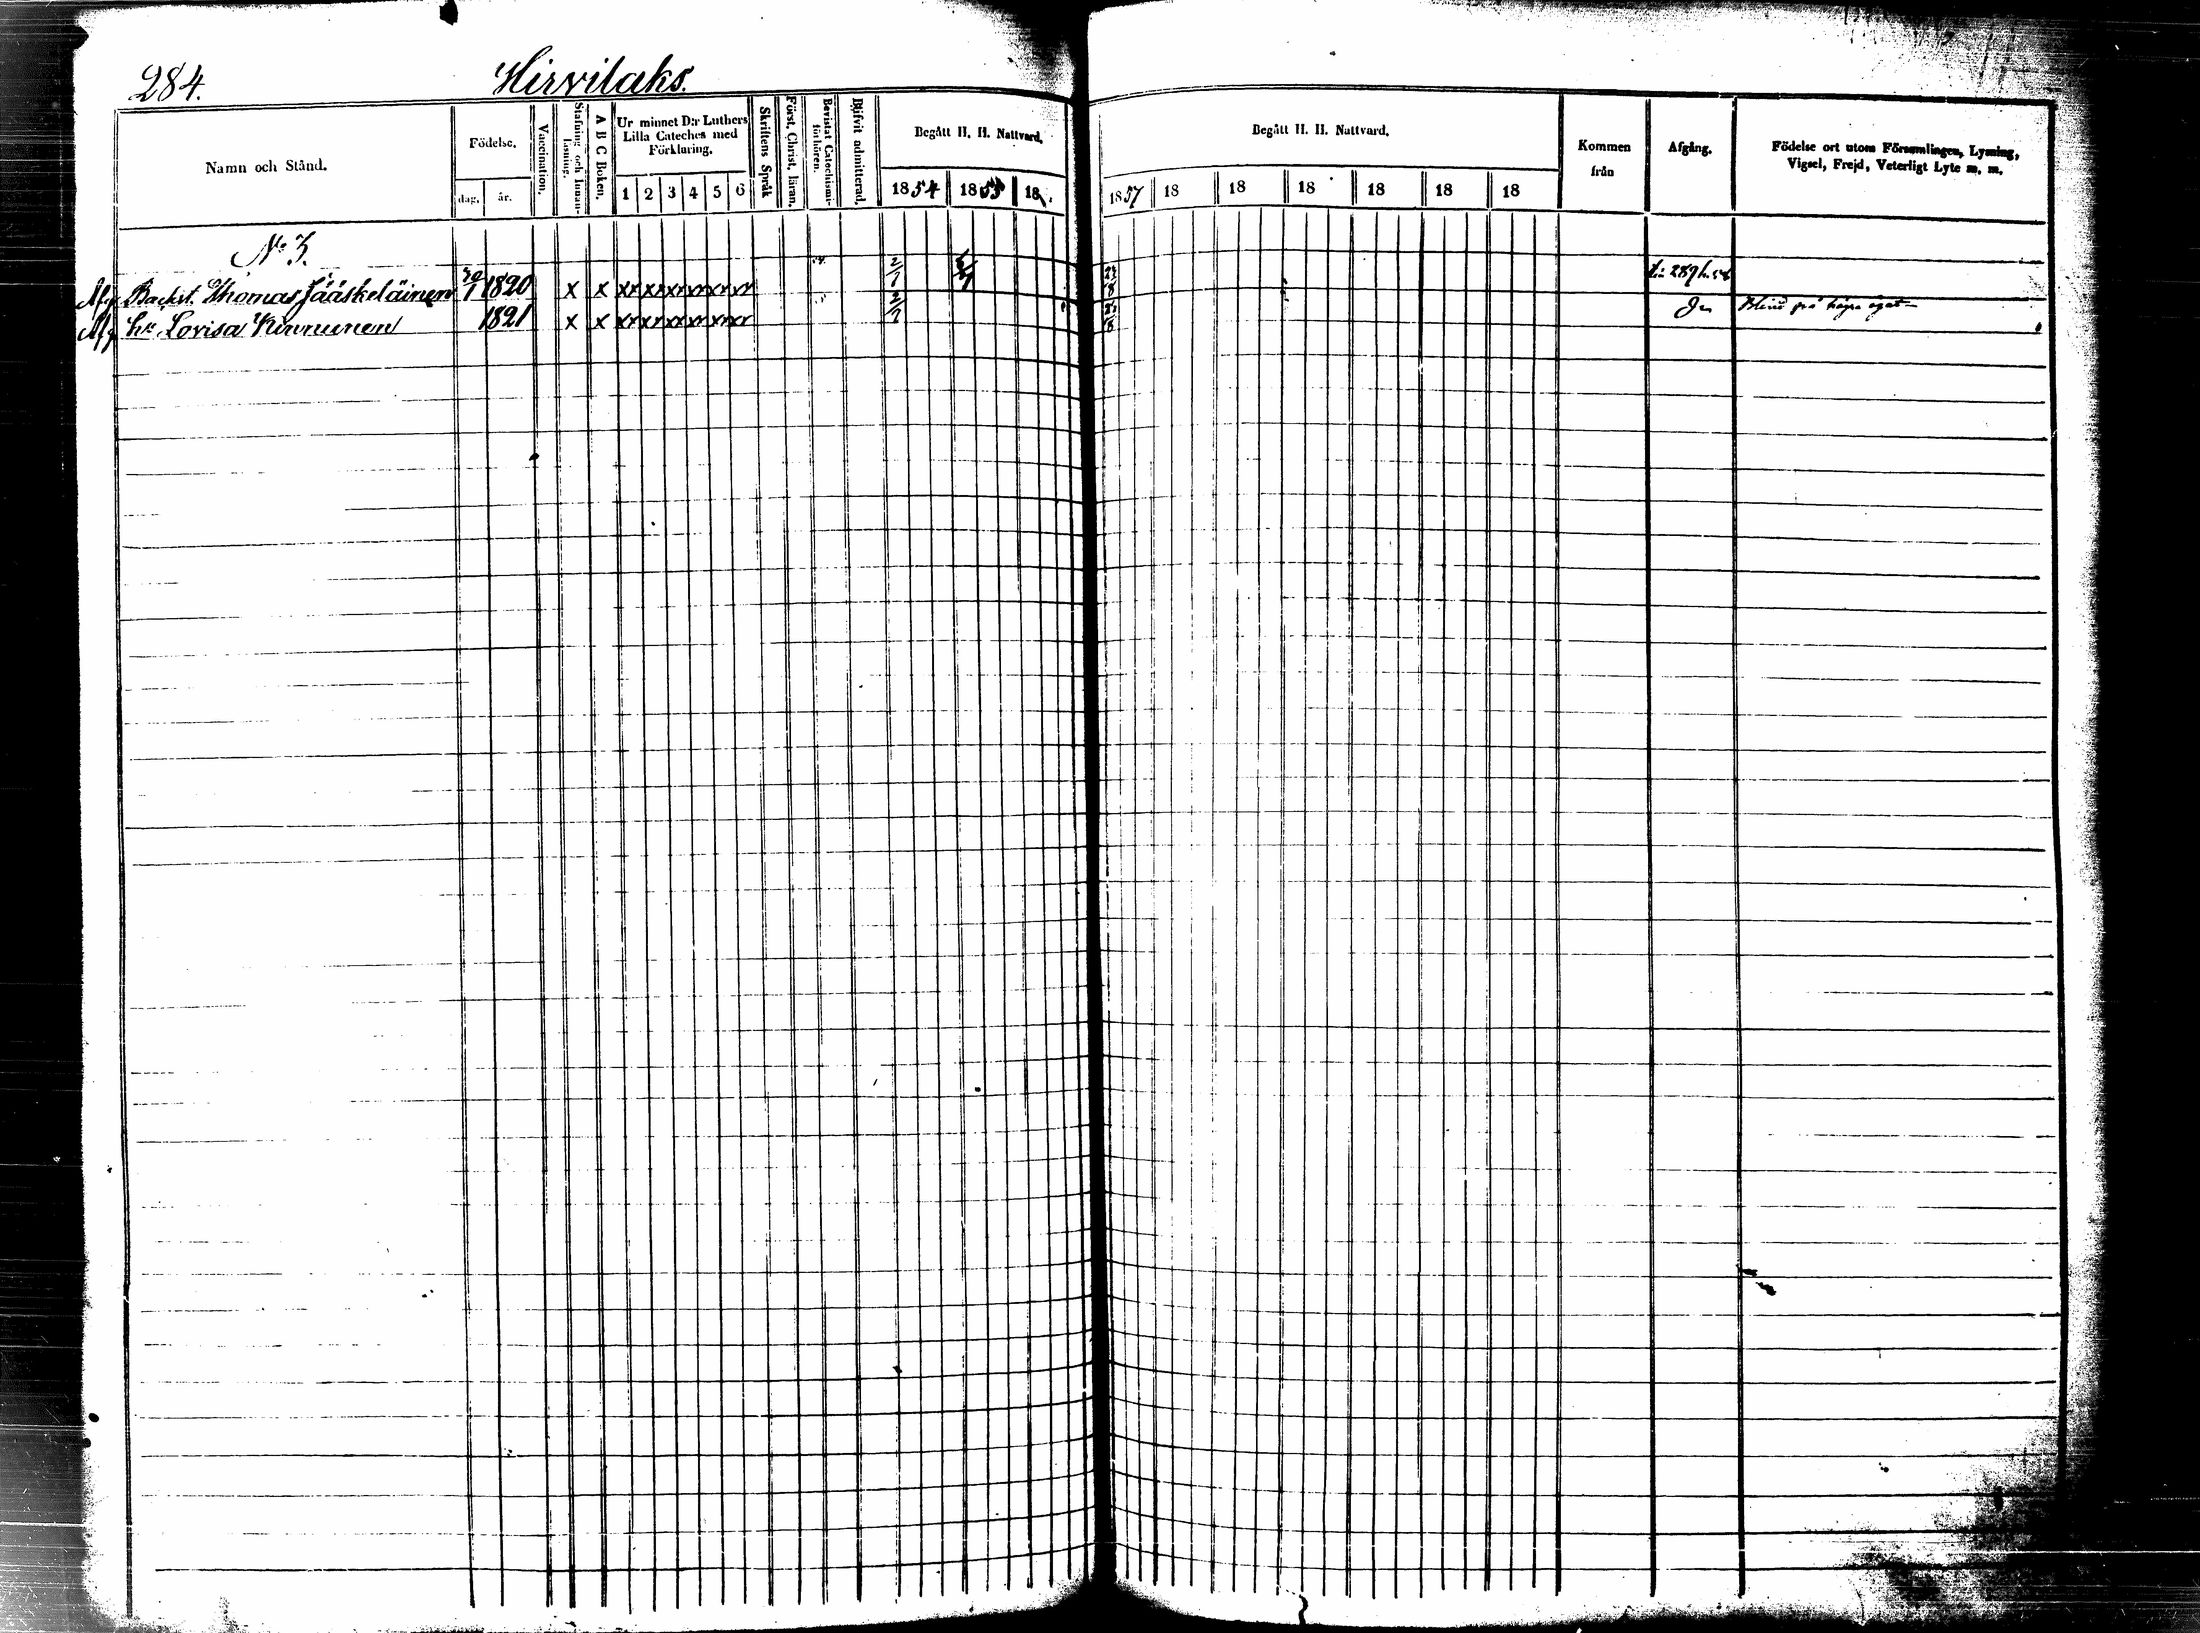 284.
Hirvilaks.
Namn och Stånd.
Födelse.
dag.
år.
Vaccination.
Stafning och Innan-
läsning.
A B C Boken.
Ur minnet D:r Luthers
Lilla Cateches med
Förklaring.
1 2 3 4 5 6
Skriftens Språk
Först. Christ. läran.
Bevistat Catechismi-
förhören.
Blifvit admitterad.
Begått H. H. Nattvard.
1854 1855 18
Begått H. H. Nattvard.
1857 18 18 18 18 18 18
Kommen
från
Afgång.
Födelse ort utom Församlingen, Lysning,
Vigsel, Frejd, Veterligt Lyte m. m.
No 3.
Afg Backst. Thomas Jääskeläinen 30/1 1820 x x xx xx xx xx xx xx 2/7 22/8
Afg hu Lovisa Kinnunen 1821 x x xx xx xx xx xx xx 2/7 22/8 Blind på högra ögat